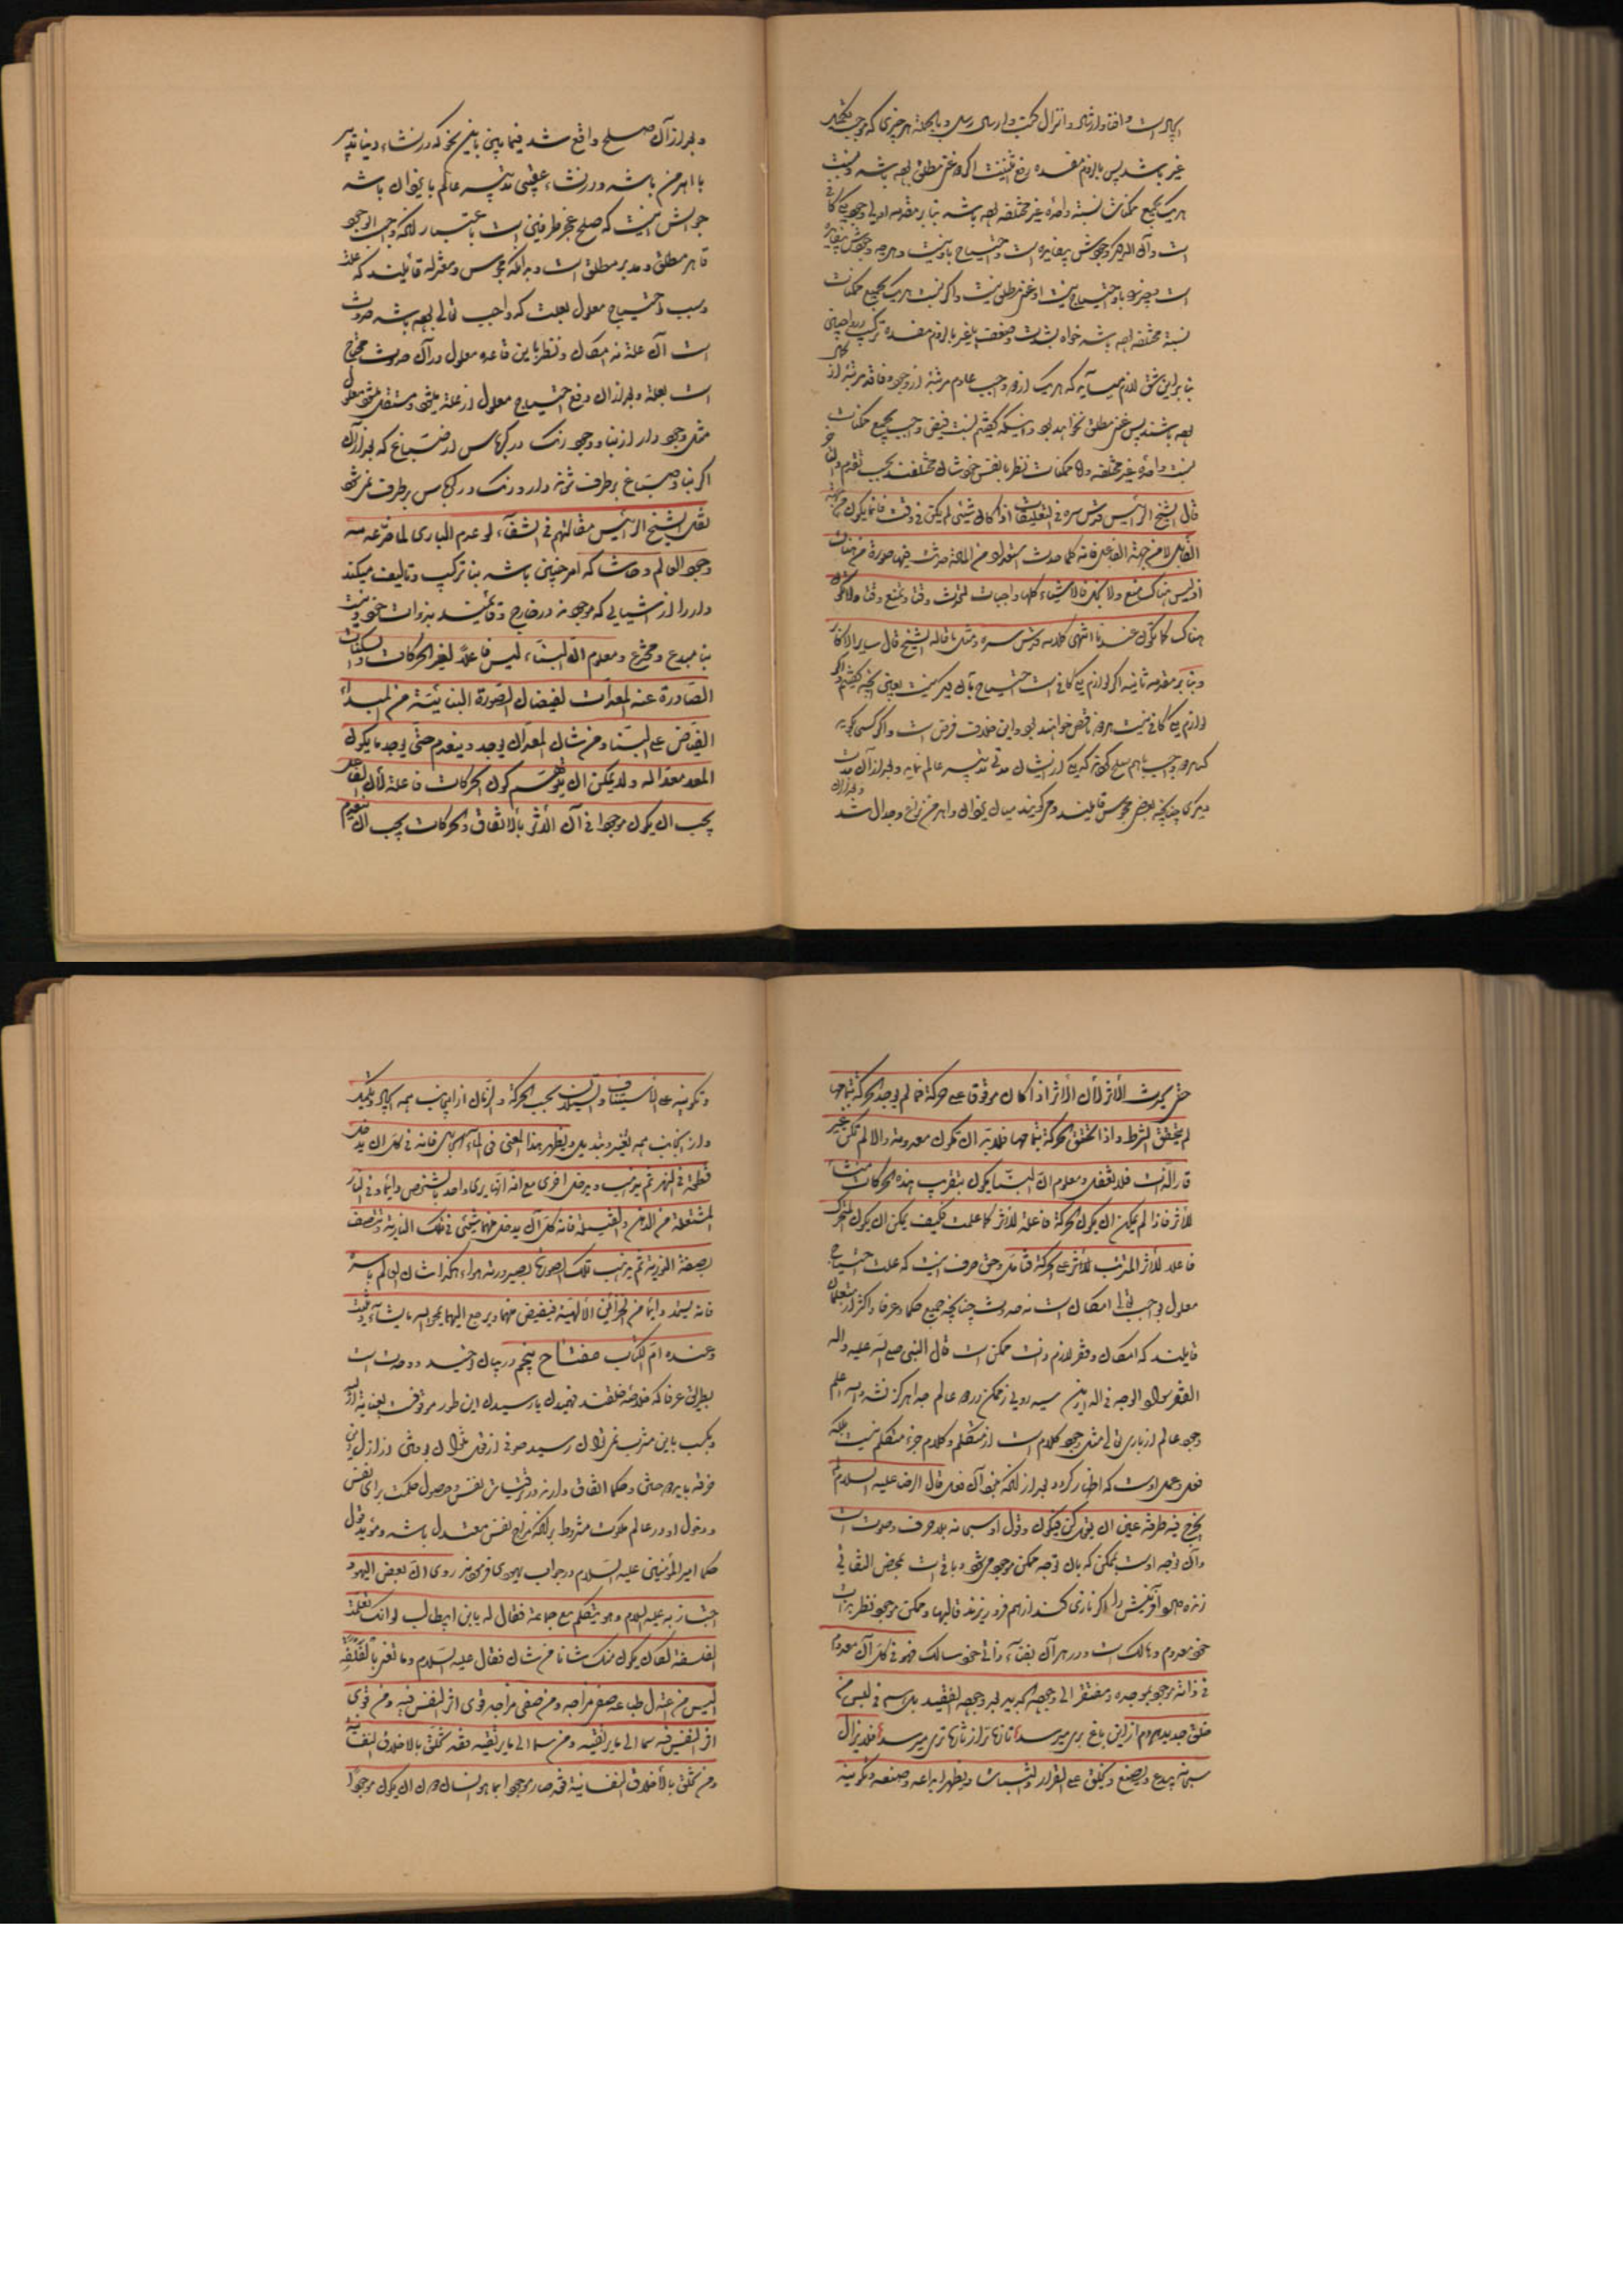 غیر باشد پس با لزوم مفسده رفع تثنیت اگر هر دو غنی مطلق بوده باشد و نسبت
هر یک بجمیع ممکنات نسبة واحده غیر مختلفه بوده باشد بنا بر مقدمه اولی وجود یکی کافی
است و آن دیگر وجودش بیفایده است و احتیاج باو نیست و هر چه وجودش بیفایده
است و چیزی باو احتیاج نیست او غنی مطلق نیست و اگر نسبت هر یک بجمیع ممکنات
نسبة مختلفه بوده باشد خواه بشدت و ضعف یا بغیر با لزوم مفسده ترکیب
بنا بر این شق لازم میآید که هر یک از دو واجب عادم مرتبه از وجود و فاقد مرتبه از
بوده باشند پس غنی مطلق نخواهد بود و اینکه گفتیم نسبت فیض واجب بجمیع ممکنات
نسبت واحده غیر مختلفه و اما ممکنات نظر بانفس خودشان مختلفند بحسب تقدم و تأخر
قال الشیخ الرئیس قدس سره فی التعلیقات اذا کان شیئی لم یکن فی وقت فانما یکون من جهة
القابل لا من جهة الفاعل فانه کلما حدث استعداد من المادة حدث فیها صورة من هناک
اذ لیس هناک منع ولا بخل فالاشیاء کلها واجبات لا تحدث وقتا و تمتنع وقتا ولا تکون
هناک کما تکون عندنا انتهی کلامه قدس سره و مثل ما قاله الشیخ قال سایر الاکابر
و بنا بر مقدمه ثانیه اگر لوازم یکی کافی است احتیاج بآن دیگر نیست یعنی نحیکه گفتیم و اگر
لوازم یکی کافی نیست هر دو ناقص خواهند بود و این خلاف فرض است و اگر کسی گوید
که هر دو واجب باهم صلح کرده که یکی از ایشان مدتی تدبیر عالم نماید و بعد از آن مدت
دیگری چنانچه بعضی مجوس قایلند و میگویند میان یزدان و اهرمن نزاع و جدال شد و بعد از آن
و بعد از آن صلح واقع شد فیما بین باین نحو که در نشاء دنیا تدبیر
با اهرمن باشد و در نشاء عقبی تدبیر عالم با یزدان باشد
جوابش اینست که صلح عجز طرفین است باعتبار آنکه واجب الوجود
قاهر مطلق و مدبر مطلق است و بدانکه مجوس و معتزله قائلند که علة
و سبب احتیاج معلول بعلت که واجب تعالی بوده باشد حدوث
است آن علة نه امکان و نظر باین قاعده معلول در آن حدوث محتاج
است بعلة و بعد از آن رفع احتیاج معلول از علة میشود و مستقل میشود معلول
مثل وجود دار از بنا و وجود رنگ در کرباس از صباغ که بعد از آن
اگر بنا و صباغ برطرف شوند دار و رنگ در کرباس برطرف نمیشود
نقل الشیخ الرئیس مقالتهم فی الشفآء لو عدم الباری لما ضرّ عدمه
وجود العالم و حاشا که امر چنین باشد بنا ترکیب و تألیف میکند
دار را از اشیائی که موجودند در خارج و قائمند بذوات خود و نیست
بنا مبدع و مخترع و معلوم انّ البنّاء لیس فاعلاً لغیر الحرکات والسکنات
الصّادرة عنه المعدّات لفیضان الصّورة البنائیّة من المبدأ
الفیّاض علی البنّاء و من شأن المعدّ ان یوجد و ینعدم حتّی یوجد ما یکون
المعد معدّا له و لا یمکن ان یتوهّم کون الحرکات فاعلة لأن الفاعل
یجب ان یکون موجودا فی آن الاثر بالاتفاق والحرکات یجب ان ینعدم
حتی یحدث الأثر لأن الأثر اذا کان موقوفا علی حرکة فما لم یوجد الحرکة بتمامها
لم یتحقق الشرط و اذا تحقق الحرکة بتمامها فلابدّ ان تکون معدومة والا لم تکن غیر
قار الذات فلا تغفل و معلوم انّ البنّا یکون بتقریب هذه الحرکات
للأثر فاذا لم یمکن ان یکون الحرکة فاعلة للأثر کما علمت فکیف یمکن ان یکون المتحرک
فاعلا للاثر المترتب للأثر علی الحرکة فتأمل و حق حرف اینست که علت احتیاج
معلول بواجب تعالی امکان است نه حدوث چنانچه جمیع حکما و عرفا و اکثر از متکلمان
قایلند که امکان و فقر لازم ذات ممکن است قال النبی صلی الله علیه و اله
الفقر سواد الوجه فی الدارین سیه رویی ز ممکن در دو عالم جدا هرگز نشد والله اعلم
وجود عالم از باری تعالی مثل وجود کلام است از متکلم و کلام جزء متکلم نیست بلکه
فعل و عمل اوست که اظهار کرده بعد از آنکه نبود آن فعل قال الرضا علیه السلام
یخرج فیه طرفة عین ان یقول کن فیکون و قول او سبحانه بلا حرف و صوت است
و آن توجه اوست بممکن که بآن توجه ممکن موجود میشود و باقی است بمحض التفاتی
زنده دارد آفرینش را اگر نازی کند از هم فرو ریزند قالبها و ممکن موجود نظر بذات
خود معدوم و هالک است و در هر آن بقتضاء ذاتی خود سالک فهو فی کل آن معدوم
فی ذاته موجود بموجده و مفتقر الی وجوده
خلق جدید هردم از این باغ بری میرسد تازه تر از تازه تری میرسد فلا یزال
سبحانه یبدع و یصنع و یخلق علی القرار والثبات و یظهر ابداعه و صنعه و تکوینه
و تکوینه علی الاستیناف والسیلان بحسب الحرکة والزمان از اینجانب همه ایجاد و تکمیل
و از آنجانب همه تغیر و تبدیل و یظهر هذا المعنی فی المآء الجاری فانه فی کل آن یدخل
قطعة فی النهر ثم یذهب و یدخل اخری مع انه انّها یری واحد بالشخص دایما و فی النار
المشتعلة من الدهن والفتیلة فانه کل آن یدخل منهما شیئی فی تلک الناریة و یتصف
بصفة النوریة ثم یذهب تلک الصورة بصیرورته هواء هکذا شان العالم باسره
فانه یستمد دایما من الخزائن الالهیة فیفیض منها و یرجع الیها یمحو الله ما یشآء و یثبت
و عنده امّ الکتاب مفتاح پنجم در بیان وحدت است
بطریق عرفا که خلاصه خلقند فهمیدن یا رسیدن این طور موقوف بعنایة ازلیه
خرقه باید و حکما اتفاق دارند در اقتباس نفس و حصول حکمت برای نفس
و دخول او در عالم ملکوت مشروط بر آنکه مزاج نفس معتدل باشد و مؤید قول
حکما امیرالمؤمنین علیه السلام در جواب یهودی فرموده روی انّ بعض الیهود
اجتاز به علیه السلام و هو یتکلم مع جماعة فقال له یابن ابیطالب لو انک تعلمت
الفلسفة لکان یکون منک شانا من شان فقال علیه السلام و ما تعنی بالفلسفة
الیس من اعتدل طباعه صفی مزاجه و من صفی مزاجه قوی اثر النفس فیه و من قوی
اثر النفس فیه سما الی ما یرتقیه و من سما الی ما یرتقیه فقد تخلق بالاخلاق النفسانیة
و من تخلق بالأخلاق النفسانیة فقد صار موجودا بما هو انسان دون ان یکون موجودا